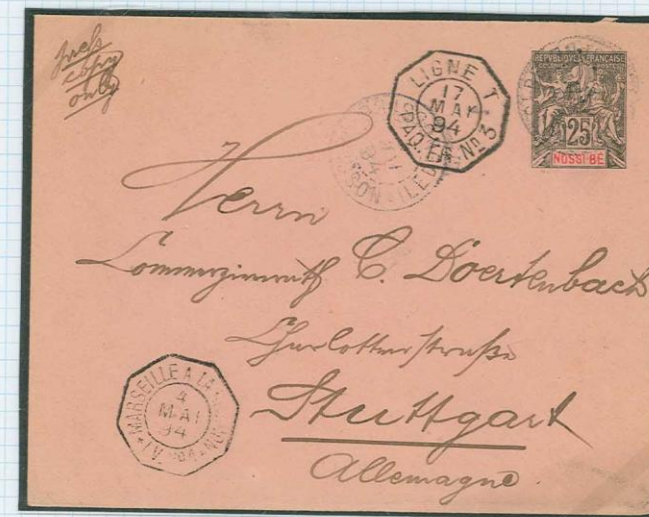 only
LIGNE T
17
MAI
94
PAQ. FR. No 3
REPUBLIQUE FRANCAISE
COLONIES POSTES
25
NOSSI-BÉ
Herrn
Commerzienrath C. Doertenbach
Charlottenstraße
Stuttgart
Allemagne.
MARSEILLE A LA
4
MAI
94